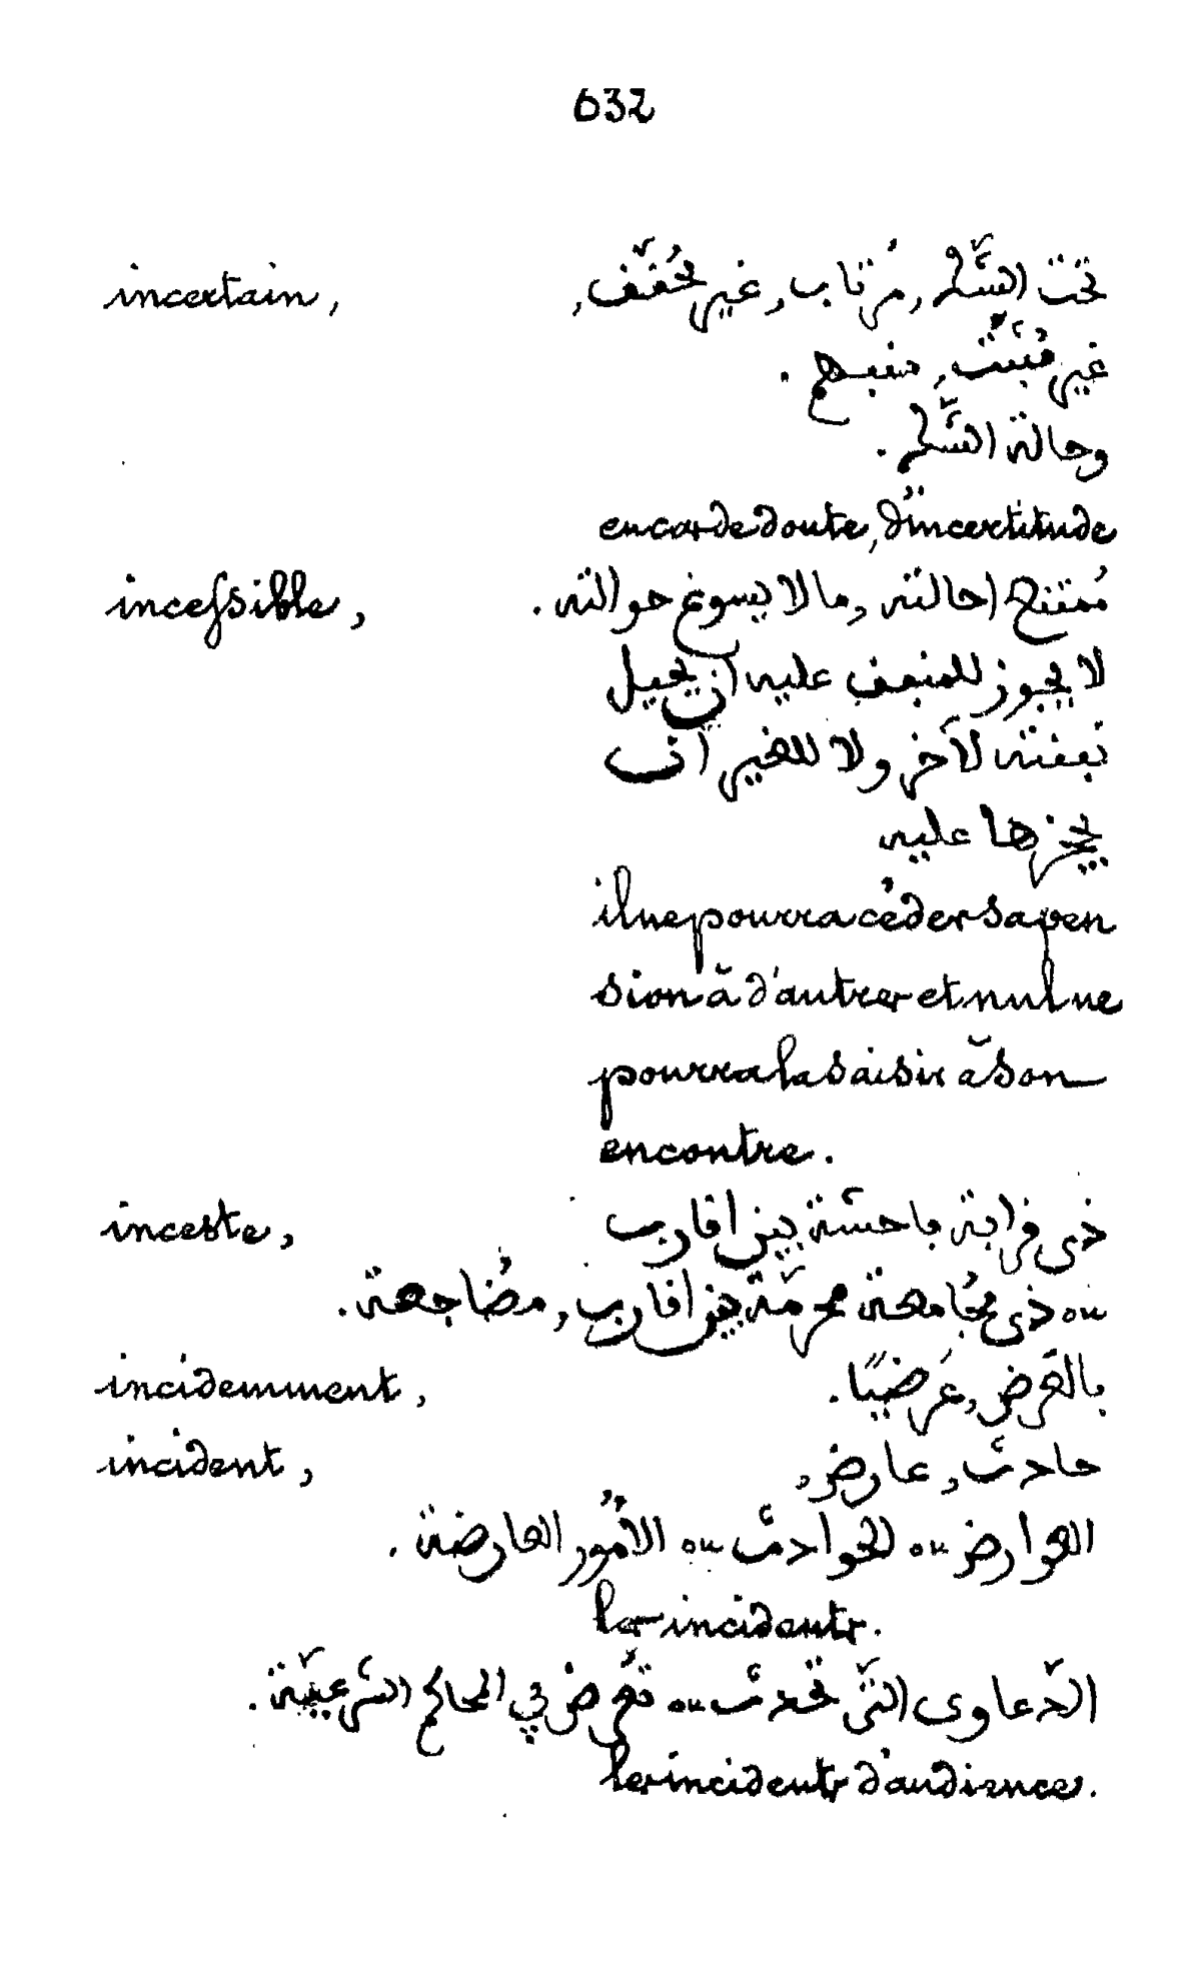 632
incertain, تحت الشَّكّ, مُرتاب, غير مُحَقَّق,
غير مُثبَّت, منبهم.
وحالة الشَّكّ.
en cas de doute, d'incertitude
incessible, مُمتنع احالته, ما لا يسوغ حوالته.
لا يجوز للمنعف عليه ان يحيل
نعفته لآخر ولا للغير ان
يحجزها عليه
il ne pourra céder sa pen
sion à d'autres et nul ne
pourra la saisir à son
encontre.
inceste, ذى قرابة فاحشة بين اقارب
ou ذى مُجامعة محرمَّة بين اقارب, مضُاجعة.
incidemment, بالعَرض, عَرضيًا.
incident, حادث, عارض,
العوارض ou الحوادث ou الامُور العارضة.
les incidents.
الدّعاوى التّى تحدث ou تعَرض في المحاكم الشرعيّة.
les incidents d'audience.